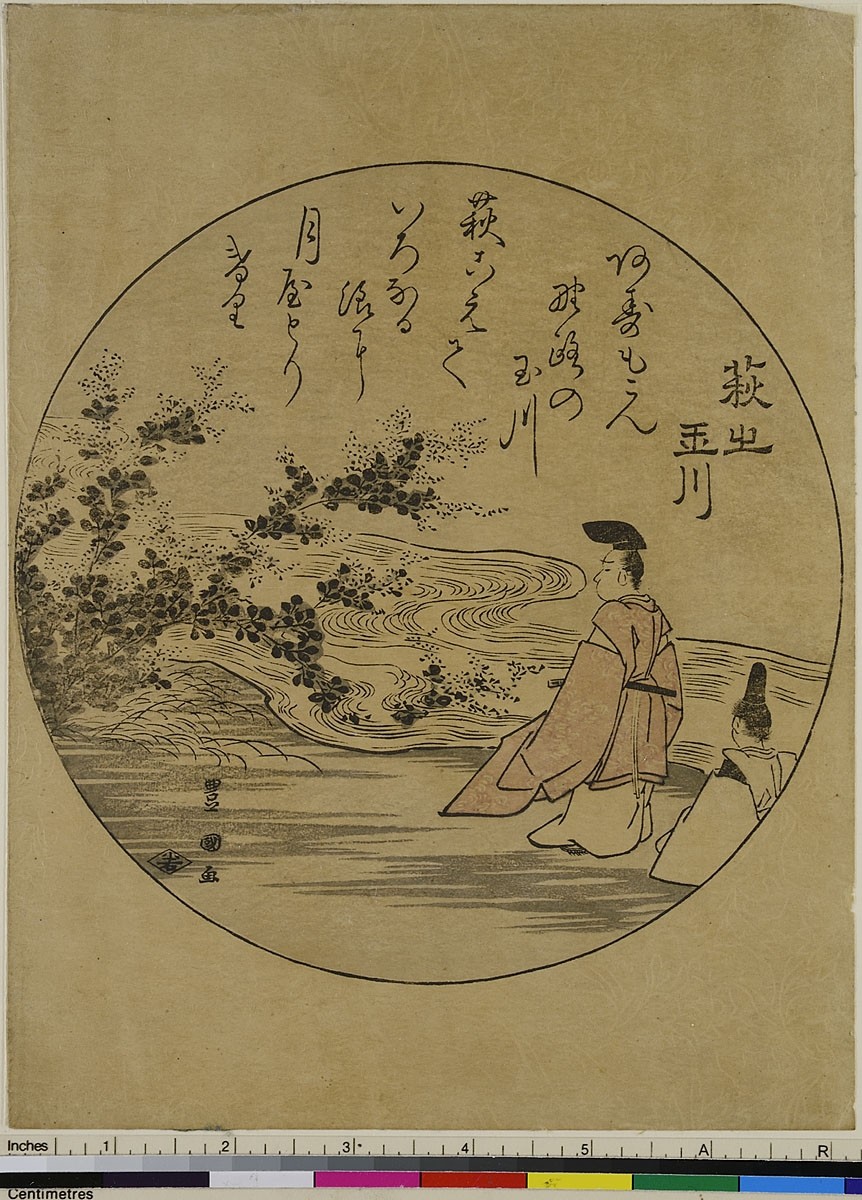 萩之
玉川
阿寿もこん
野路の
玉川
萩こえて
いろなる
浪尓
月屋とり
けり
豊國画
Inches 1 2 3 4 5 A R
Centimetres